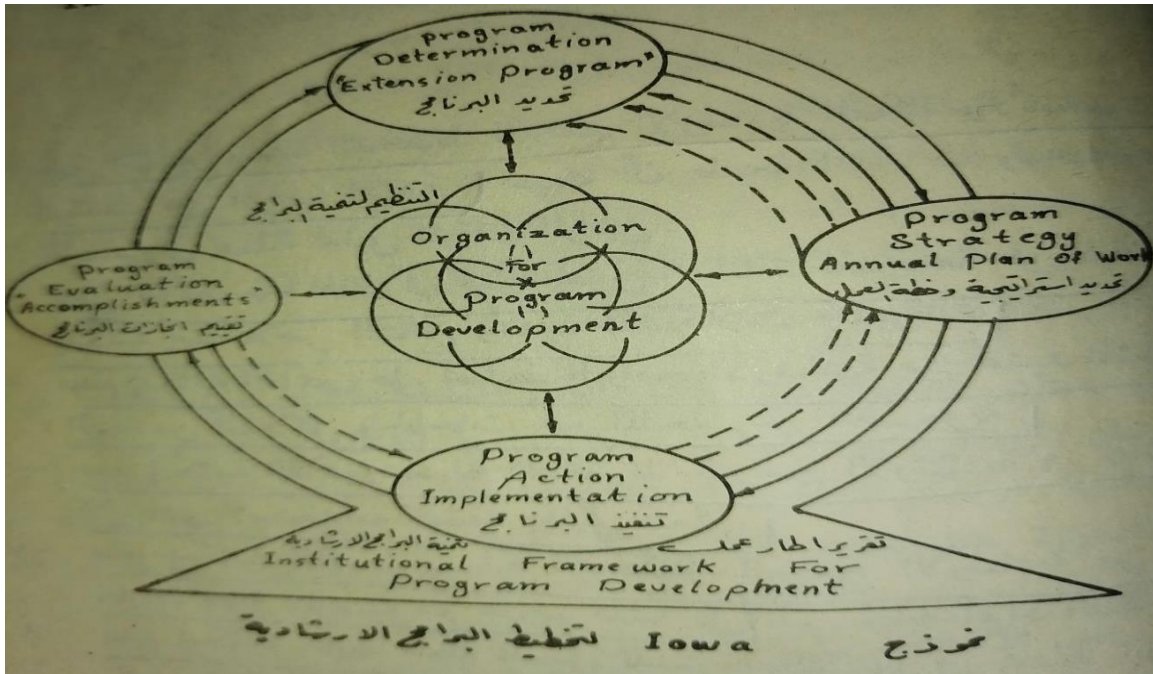 Program
Determination
"Extension Program"
تحديد البرنامج
التنظيم لتنمية البرامج
Organization
For
Program
Development
Program
Strategy
Annual Plan Of Work
تحديد استراتيجية وخطة العمل
Program
Evaluation
"Accomplishments"
تقييم انجازات البرنامج
Program
Action
Implementation
تنفيذ البرنامج
تقرير اطار عملية تنمية البرامج الارشادية
Institutional Frame work For
Program Development
نموذج Iowa لتخطيط البرامج الارشادية